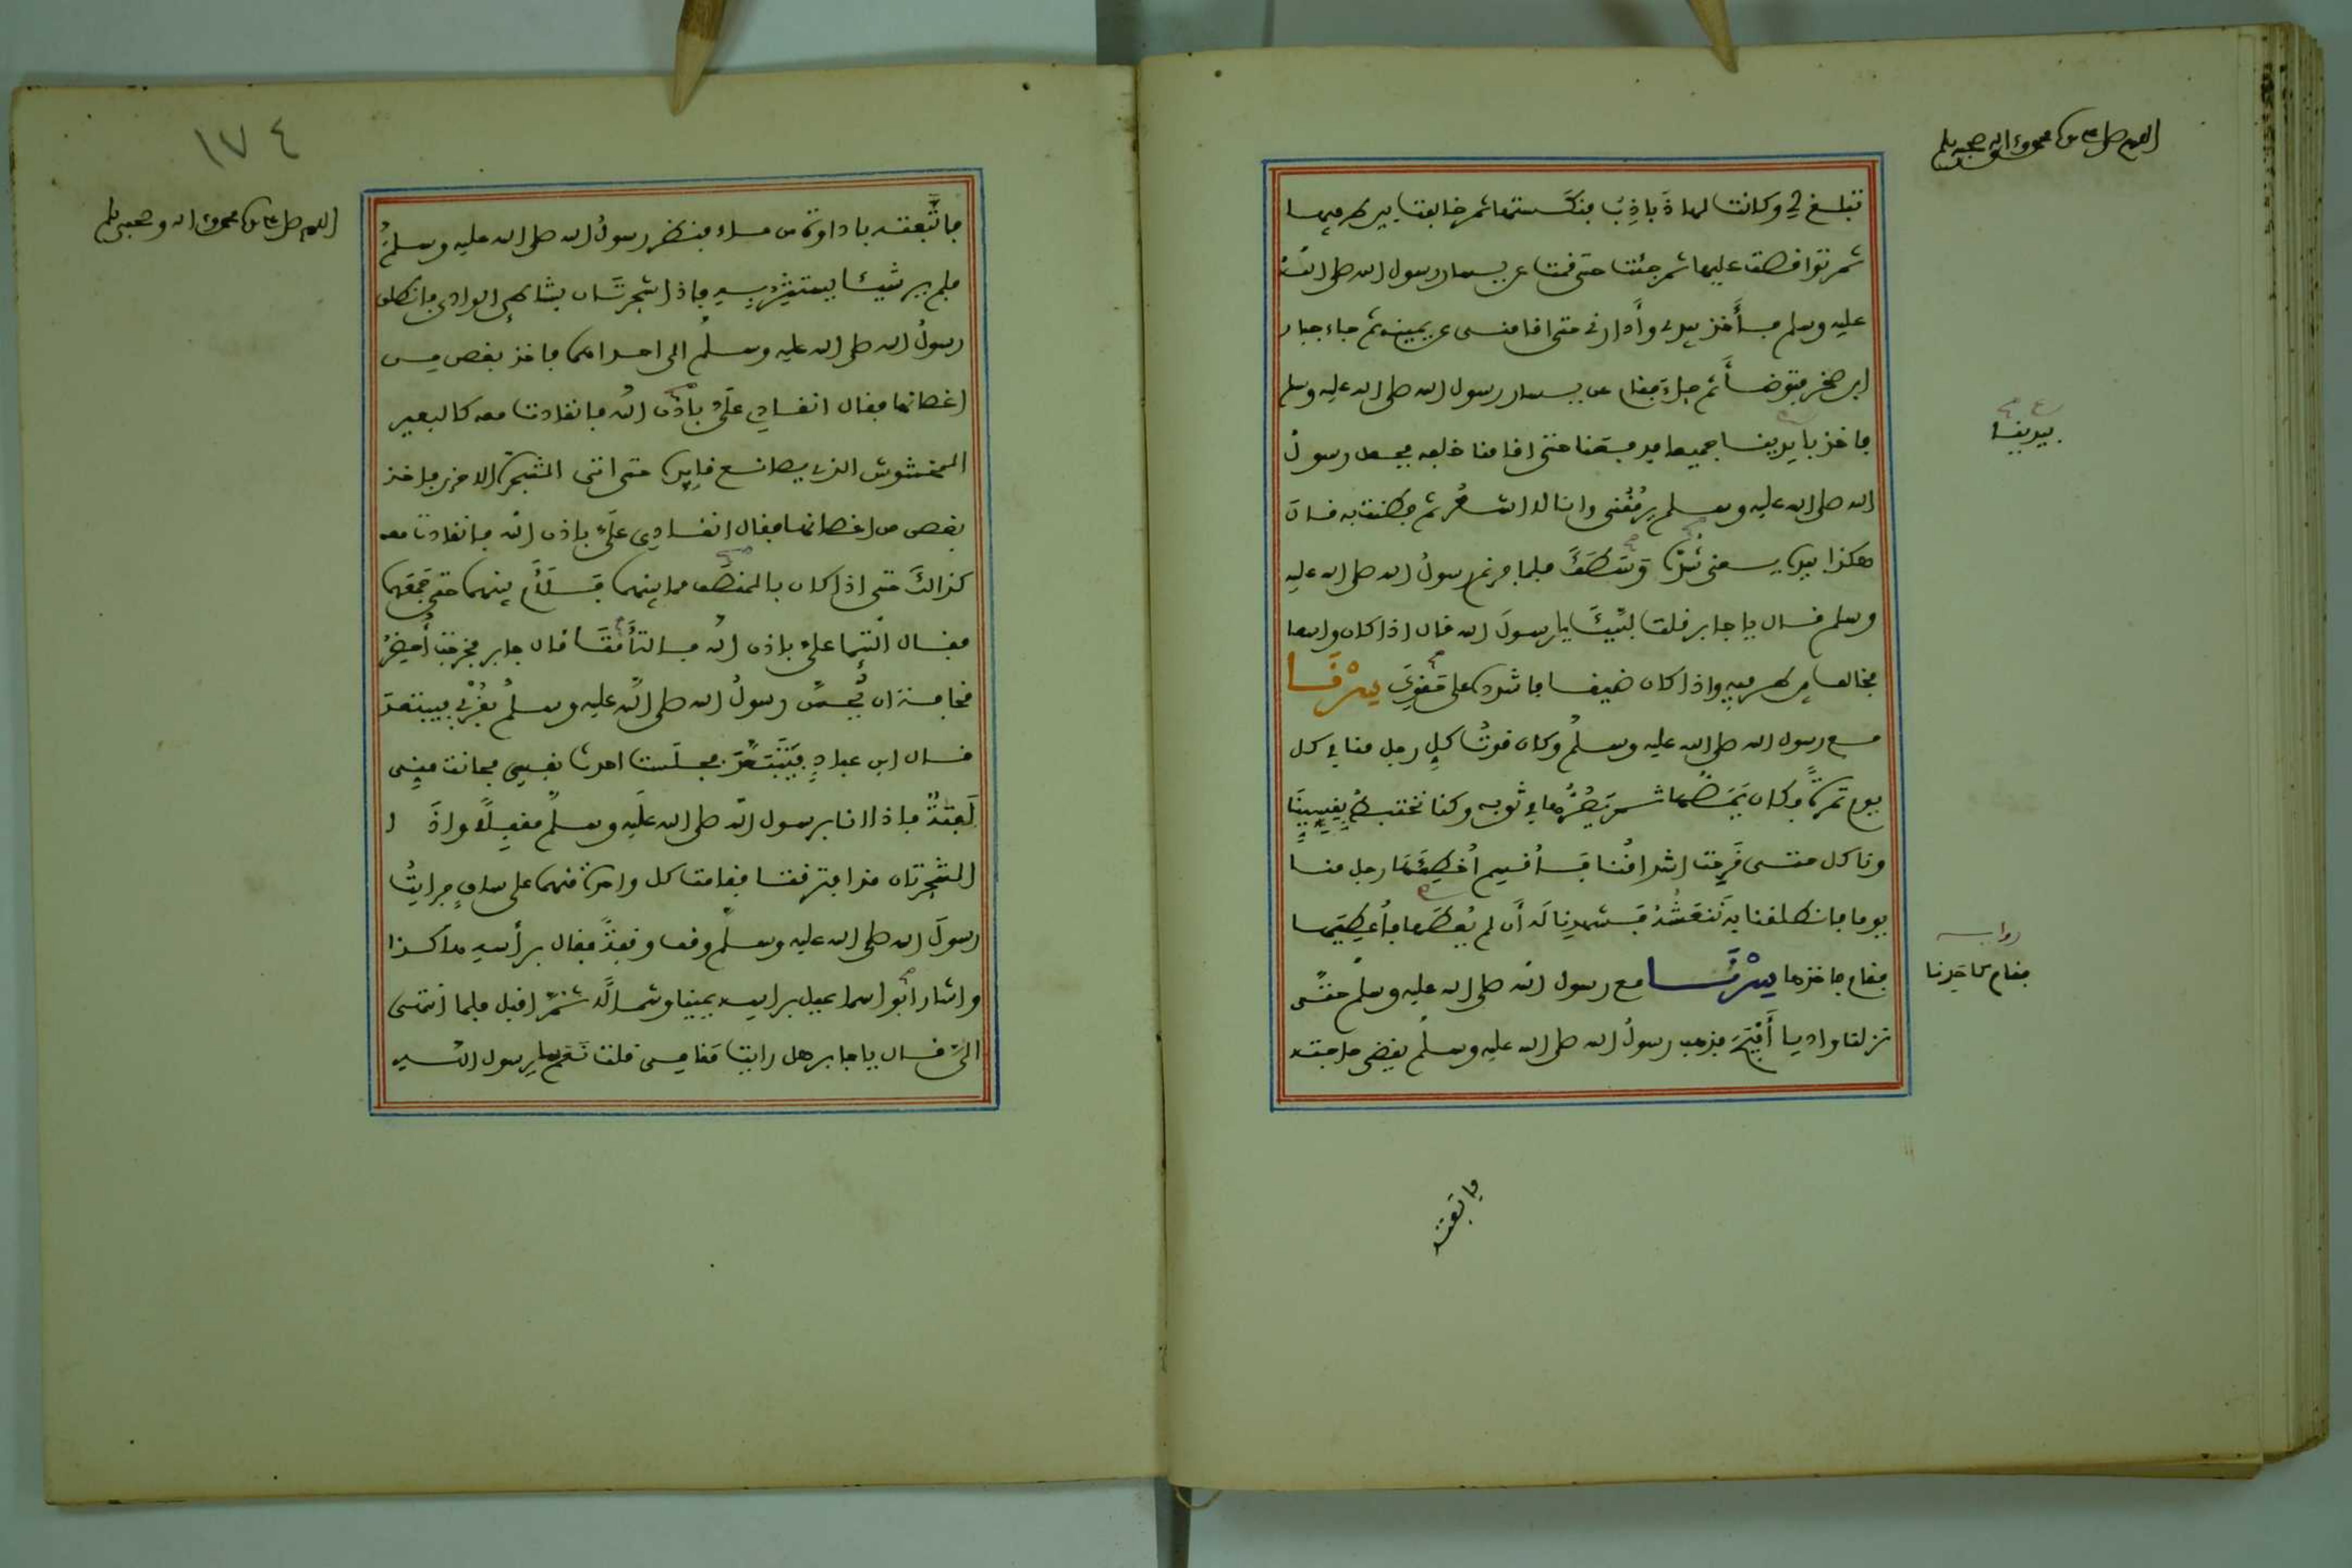 اللهم صل على سيدنا محمد وعلى اله وصحبه وسلم
تبلغ لي وكانت لها ذَباذِبُ فنكّستها ثم خالفت بين طرفيها
ثم تواقصت عليها ثم جئت حتى قمت عن يسار رسول الله صلى الله
عليه وسلم فأخذ بيدي وأدارني حتى اقامني عن يمينه ثم جاء جبار
ابن صخر فتوضأ ثم جاء فقام عن يسار رسول الله صلى الله عليه وسلم
فاخذ بايدينا جميعا فدفعنا حتى اقامنا خلفه فجعل رسول
الله صلى الله عليه وسلم يرمُقُني وانا لا اشعُر ثم فطنت به فقال
هكذا بيده يعني شُدَّ وسَطَكَ فلما فرغ رسولُ الله صلى الله عليه
وسلم قال يا جابر قلت لبّيكَ يا رسولَ الله قال اذا كان واسعا
فخالف بين طرفيه واذا كان ضيقا فاشدده على حَقوِكَ سِرْنَا
مع رسول الله صلى الله عليه وسلم وكان قوتُ كلِ رجل منا في كل
يوم تمرةً فكان يَمَصُّها ثم يَصُرُّها في ثوبه وكنا نختبط بِقِسِيِّنَا
وناكل حتى قَرِحت اشداقُنا فَأُقسِم أُخطِئَهَا رجل منا
يوما فانطلقنا به نَنعَشُهُ فشهدنا لَه أَن لم يُعطَها فأُعطِيَها
فقام فاخذها سِرْنَا مع رسول الله صلى الله عليه وسلم حتى
نزلنا واديا أَفْيَحَ فذهب رسولُ الله صلى الله عليه وسلم يقضي حاجته
بيدينا
فاتبعته
١٧٤
اللهم صل على سيدنا محمد وعلى اله وصحبه وسلم
فاتَّبعته باداوة من ماء فنظر رسولُ الله صلى الله عليه وسلم
فلم ير شيئا يستترُ به فاذا شجرتَان بشاطئ الوادي فانطلق
رسولُ الله صلى الله عليه وسلم الى احداهما فاخذ بغصن من
اغصانها فقال انقادي عليّ باذن الله فانقادت معه كالبعير
المخشوش الذي يصانع قايده حتى اتى الشجرة الاخرى فاخذ
بغصن من اغصانها فقال انقادي عليَّ باذن الله فانقادت معه
كذالكَ حتى اذا كان بالمنصف مما بينهما فلَأَم بينهما حتى جمَعَهما
فقال التَئِما عليّ باذن الله فالتَأَمَتَا قال جابر فخرجت أُحضِرُ
مخافة ان يُحِسَّ رسولُ الله صلى الله عليه وسلم بقُرْبي فيبتعدَ
قال ابن عبادٍ فَيَتَبَعَّدَ فجلَست احدث نفسي فحانت مني
لَفتةٌ فاذا انا برسول الله صلى الله عليه وسلم مقبلاً واذَا
الشجرتان قد افترقتا فقامت كل واحدة منهما على ساق فرايتُ
رسولَ الله صلى الله عليه وسلم وقف وقفةً فقال برأسه هاكذا
واشار ابُو اسماعيل براسه يمينا وشمالًا ثُمَّ اقبل فلما انتهى
اليَّ قال يا جابر هل رايت مَقامي قلت نَعَم يا رسول الله